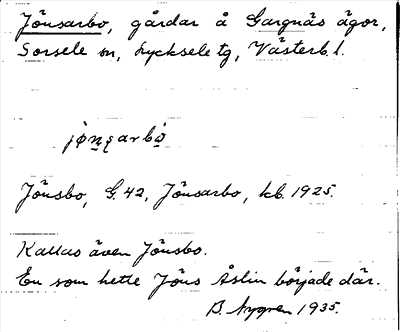 Jönsarbo, gårdar å Gargnäs ägor,
Sorsele sn, Lycksele tg, Västerb. l.
jönsarbo
Jönsbo, G. 42, Jönsarbo, kb. 1925.
Kallas även Jönsbo.
En som hette Jöns Åslin började där.
B. Nygren 1935.